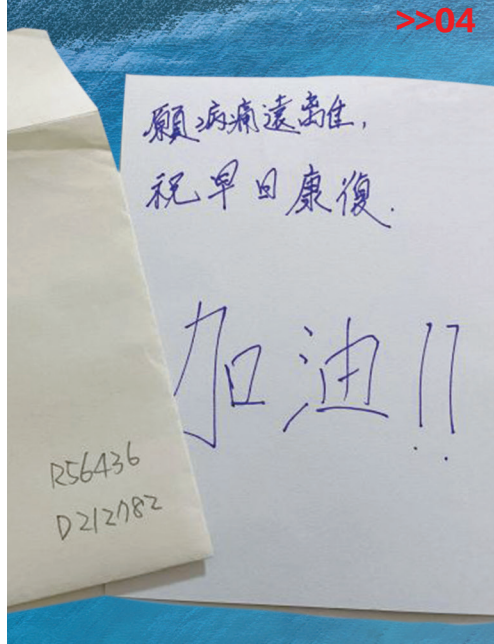 >>04
願病痛遠離,
祝早日康復.
加油!!
R56436
D212782